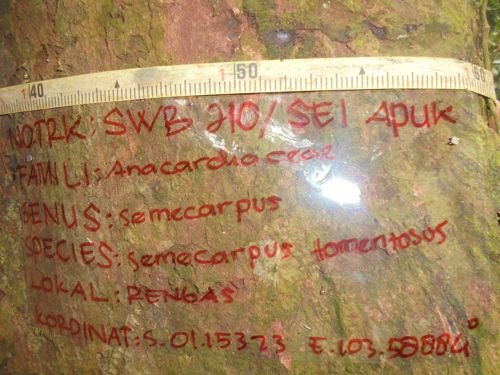 1 40 1 50 1 60
NO.TRK: SWB 210/ SEI APUK
FAMILI: Anacardiaceae
GENUS: semecarpus
SPECIES: semecarpus tomentosus
LOKAL: RENGAS
KORDINAT: S. 01.15323 E.103.58884°